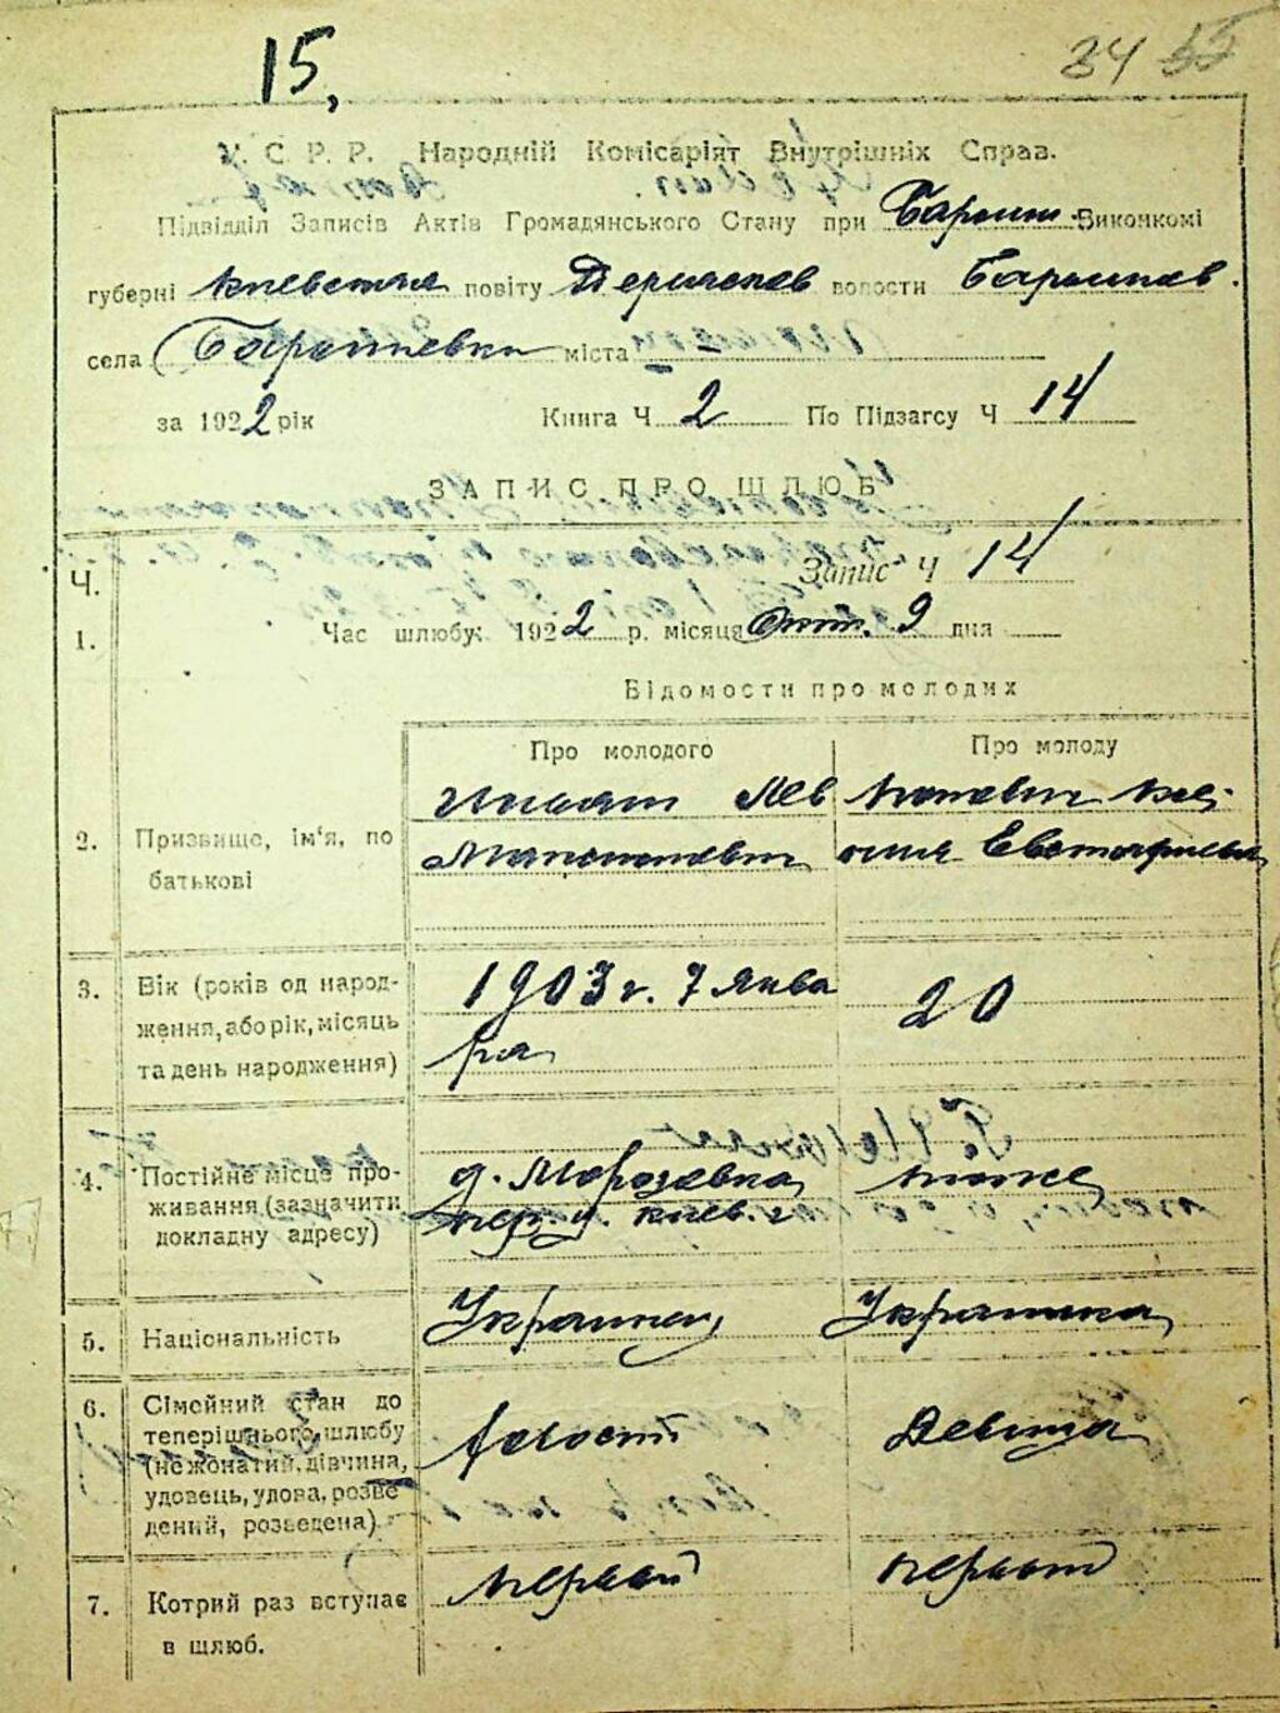 15,
34 55
У. С. Р. Р. Народній Комісаріят Внутрішніх Справ.
Підвідділ Записів Актів Громадянського Стану при Барыш. Виконкомі
губерні Киевская повіту Переяслав волости Барышев.
села Барышевки міста
за 1922 рік Книга Ч 2 По Підзагсу Ч 14
ЗАПИС ПРО ШЛЮБ
Ч. Запис Ч 14
1. Час шлюбу: 1922 р. місяця Окт. 9 дня
Відомости про молодих
Про молодого Про молоду
Лев
2. Призвище, ім'я, по
батькові
Евстафиевна
3. Вік (років од народ-
ження, або рік, місяць
та день народження)
1903 г. 7 Янва
ря
20
4. Постійне місце про-
живання (зазначити
докладну адресу)
д. Морозовка
пер. у. киев. г
тоже
5. Національність Украинец Украинка
6. Сімейний стан до
теперішнього шлюбу
(не жонатий, дівчина,
удовець, удова, розве
дений, розведена)
холост девица
7. Котрий раз вступає
в шлюб.
первый первый